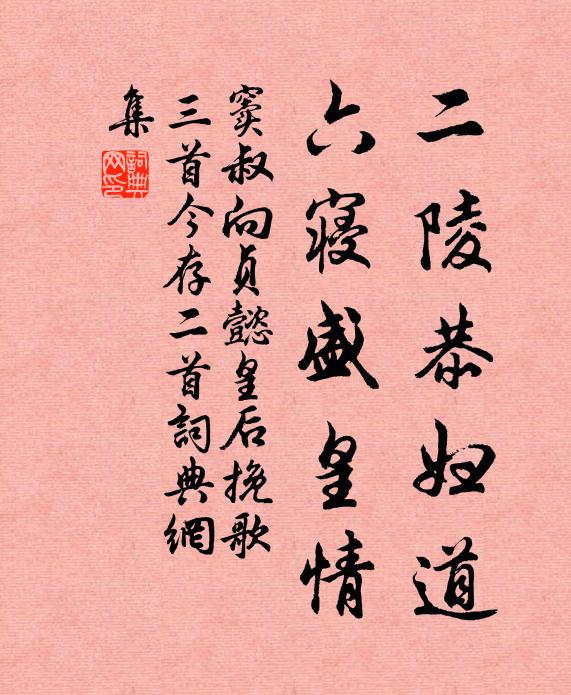 二陵恭妇道
六寝盛皇情
窦叔向贞懿皇后挽歌
三首今存二首詞典網
集
詞典
网印